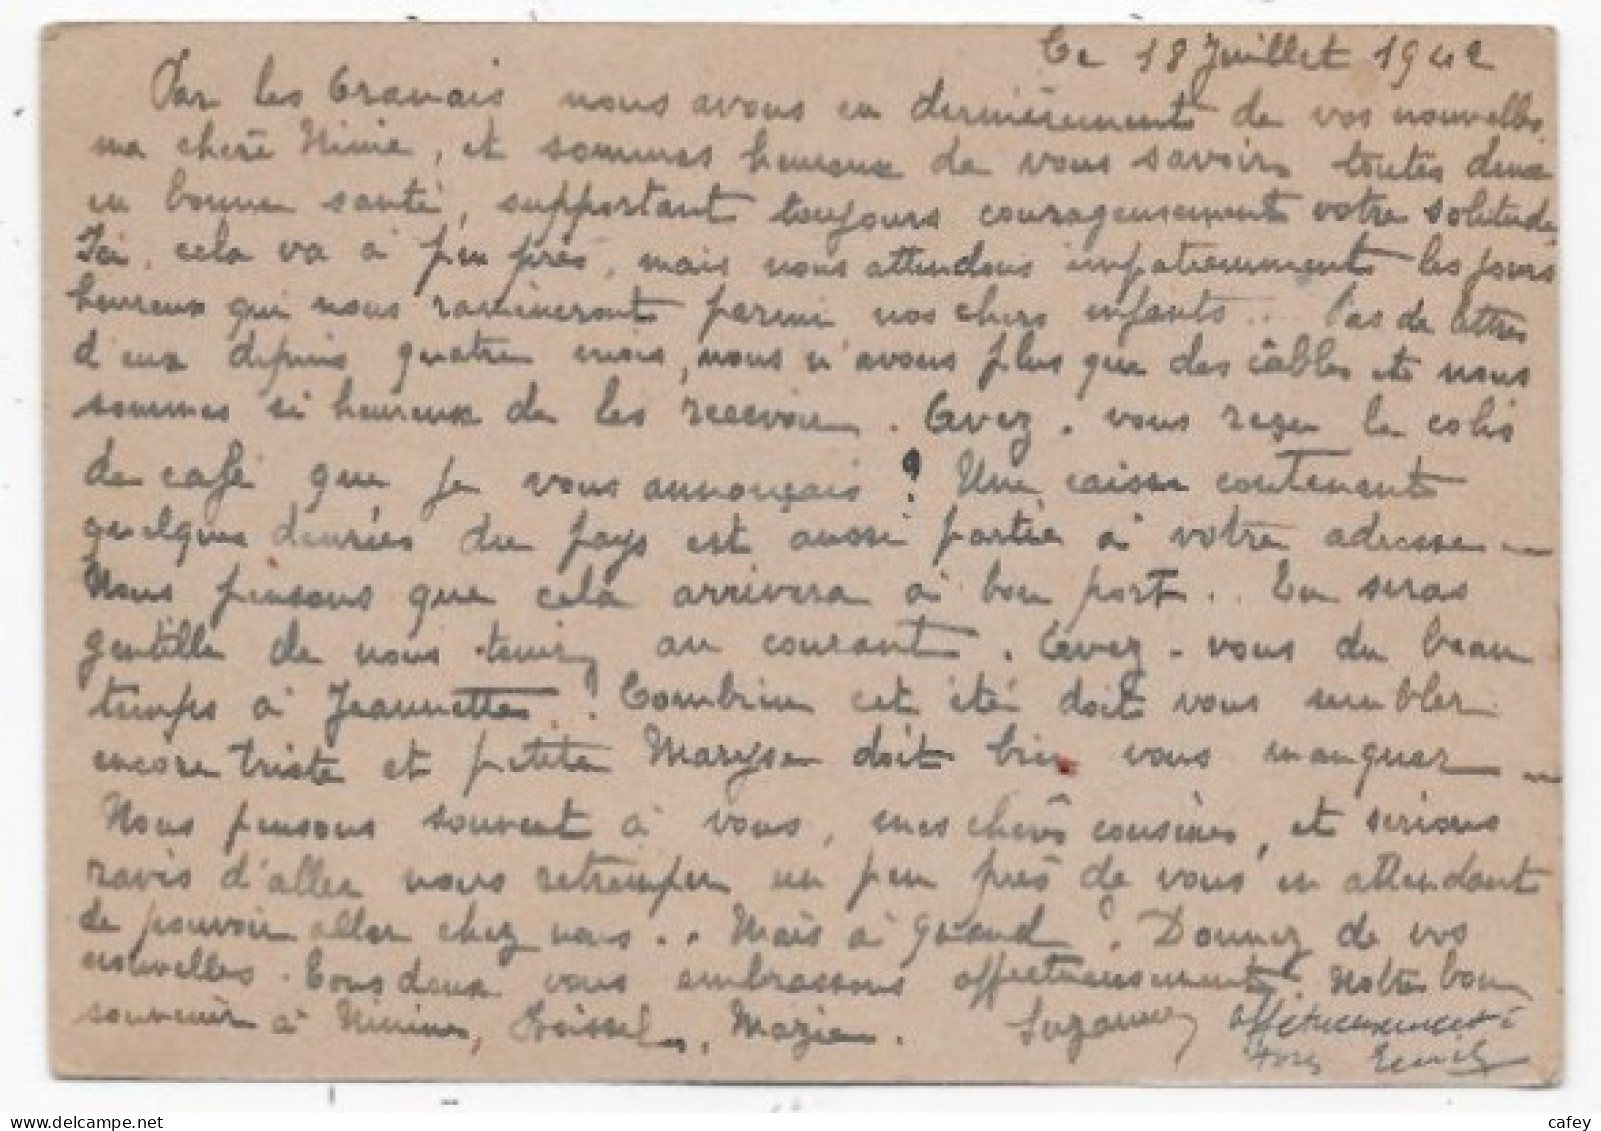 Ce 18 Juillet 1942
Par les nous avons eu dernièrement de vos nouvelles,
ma chère Ninie, et sommes heureux de vous savoir toutes deux
en bonne santé, supportant toujours courageusement votre solitude.
Ici, cela va à peu près, mais nous attendons impatiemment les jours
heureux qui nous ramèneront parmi nos chers enfants... Pas de lettres
d'eux depuis quatre mois, nous n'avons plus que des câbles et nous
sommes si heureux de les recevoir. Avez-vous reçu le colis
de café que je vous annonçais? Une caisse contenant
quelques denrées du pays est aussi partie à votre adresse —
Nous pensons que cela arrivera à bon port.. Tu seras
gentille de nous tenir au courant. Avez-vous du beau
temps à Jeannette..? Combien cet été doit vous sembler
encore triste et petite Maryse doit bien vous manquer —
Nous pensons souvent à vous, mes chères cousines, et serions
ravis d'aller nous retremper un peu près de vous en attendant
de pouvoir aller chez nous.. Mais à quand? Donnez de vos
nouvelles. Tous deux vous embrassons affectueusement. Notre bon
souvenir à . Suzanne affectueusement
Emile
cafey